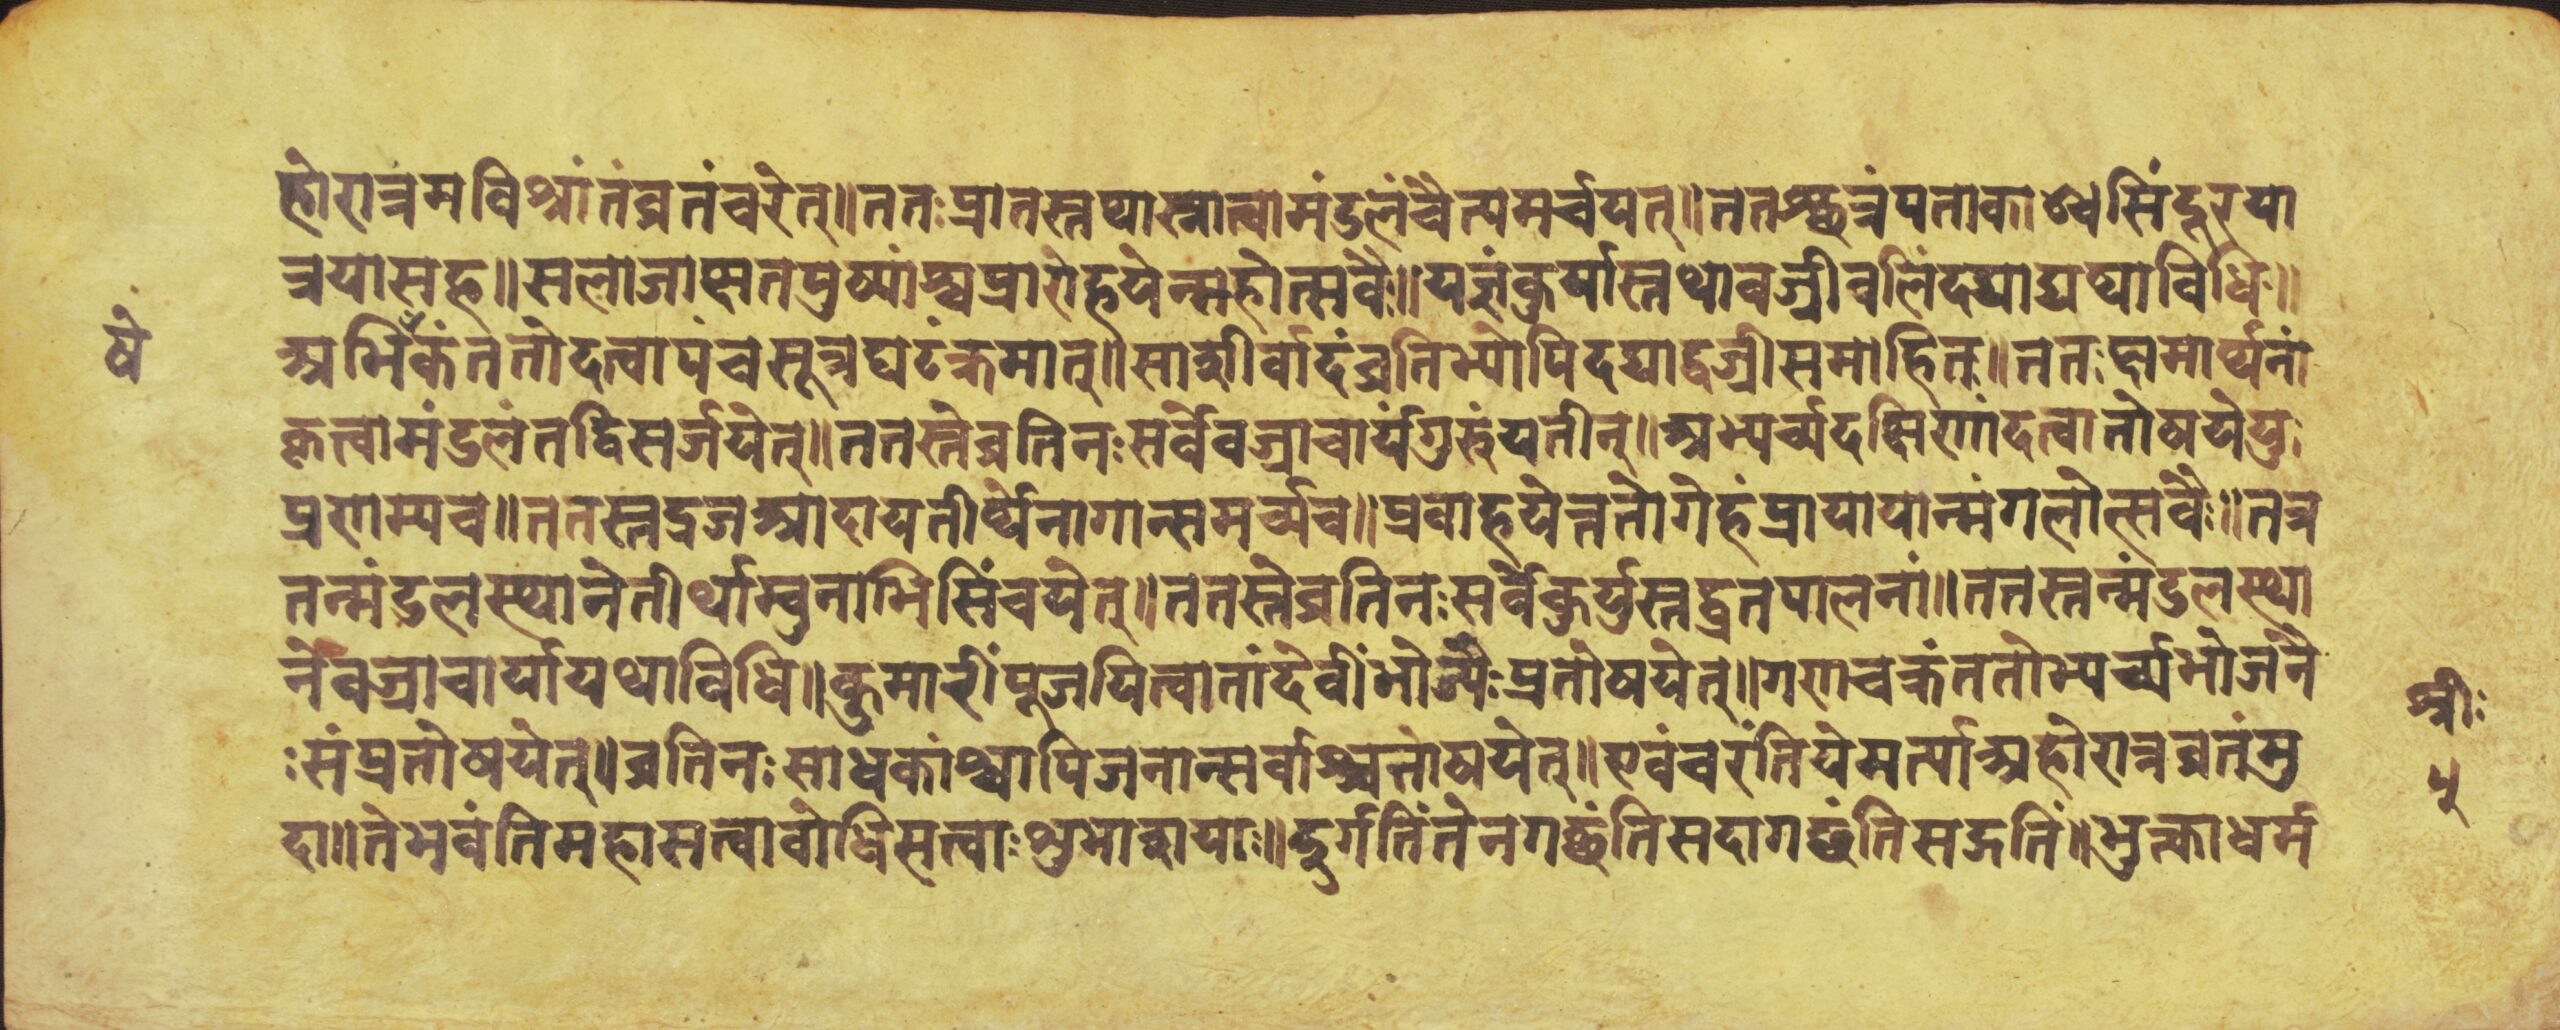 होरात्रमविश्रांतंव्रतंचरेत्॥ततःप्रातस्तथास्नात्वामंडलंचैत्यमर्चयेत्॥ततश्छत्रंपताकाञ्चसिंदूरया
त्रयासह॥सलाजाक्षतपुष्पांश्चप्रारोहयेन्महोत्सवैः॥यज्ञंकुर्यास्तथावज्रीबलिंदद्याद्यथाविधिः॥
षे
अभिकंततोदत्वापंचसूत्रघटंक्रमात्॥साशीर्वादंव्रतिभ्योपिदद्याद्वज्रीसमाहितः॥ततःक्षमार्थनां
कृत्वामंडलंतद्विसर्जयेत्॥ततस्तेव्रतिनःसर्वेवज्राचार्यंगुरुंयतीन्॥अभ्यर्च्यदक्षिणांदत्वातोषयेयुः
प्रणम्यच॥ततस्तद्रजआदायतीर्थेनागान्समर्च्यच॥प्रवाहयेत्ततोगेहंप्रायायान्मंगलोत्सवैः॥तत्र
तन्मंडलस्थानेतीर्थाम्बुनाभिसिंचयेत्॥ततस्तेव्रतिनःसर्वेकुर्युस्तद्व्रतपालनां॥ततस्तन्मंडलस्था
नेवज्राचार्यायथाविधि॥कुमारींपूजयित्वातांदेवींभोज्यैःप्रतोषयेत्॥गणचक्रंततोभ्यर्च्यभोजनै
श्रीः
ःसंप्रतोषयेत्॥व्रतिनःसाधकांश्चापिजनान्सर्वाश्चतोषयेत्॥एवंचरंतियेमर्त्याअहोरात्रव्रतंमु
५
दा॥तेभवंतिमहासत्वाबोधिसत्वाःशुभाशयाः॥दुर्गतिंतेनगच्छंतिसदागच्छंतिसद्गतिं॥भुक्त्वाधर्म